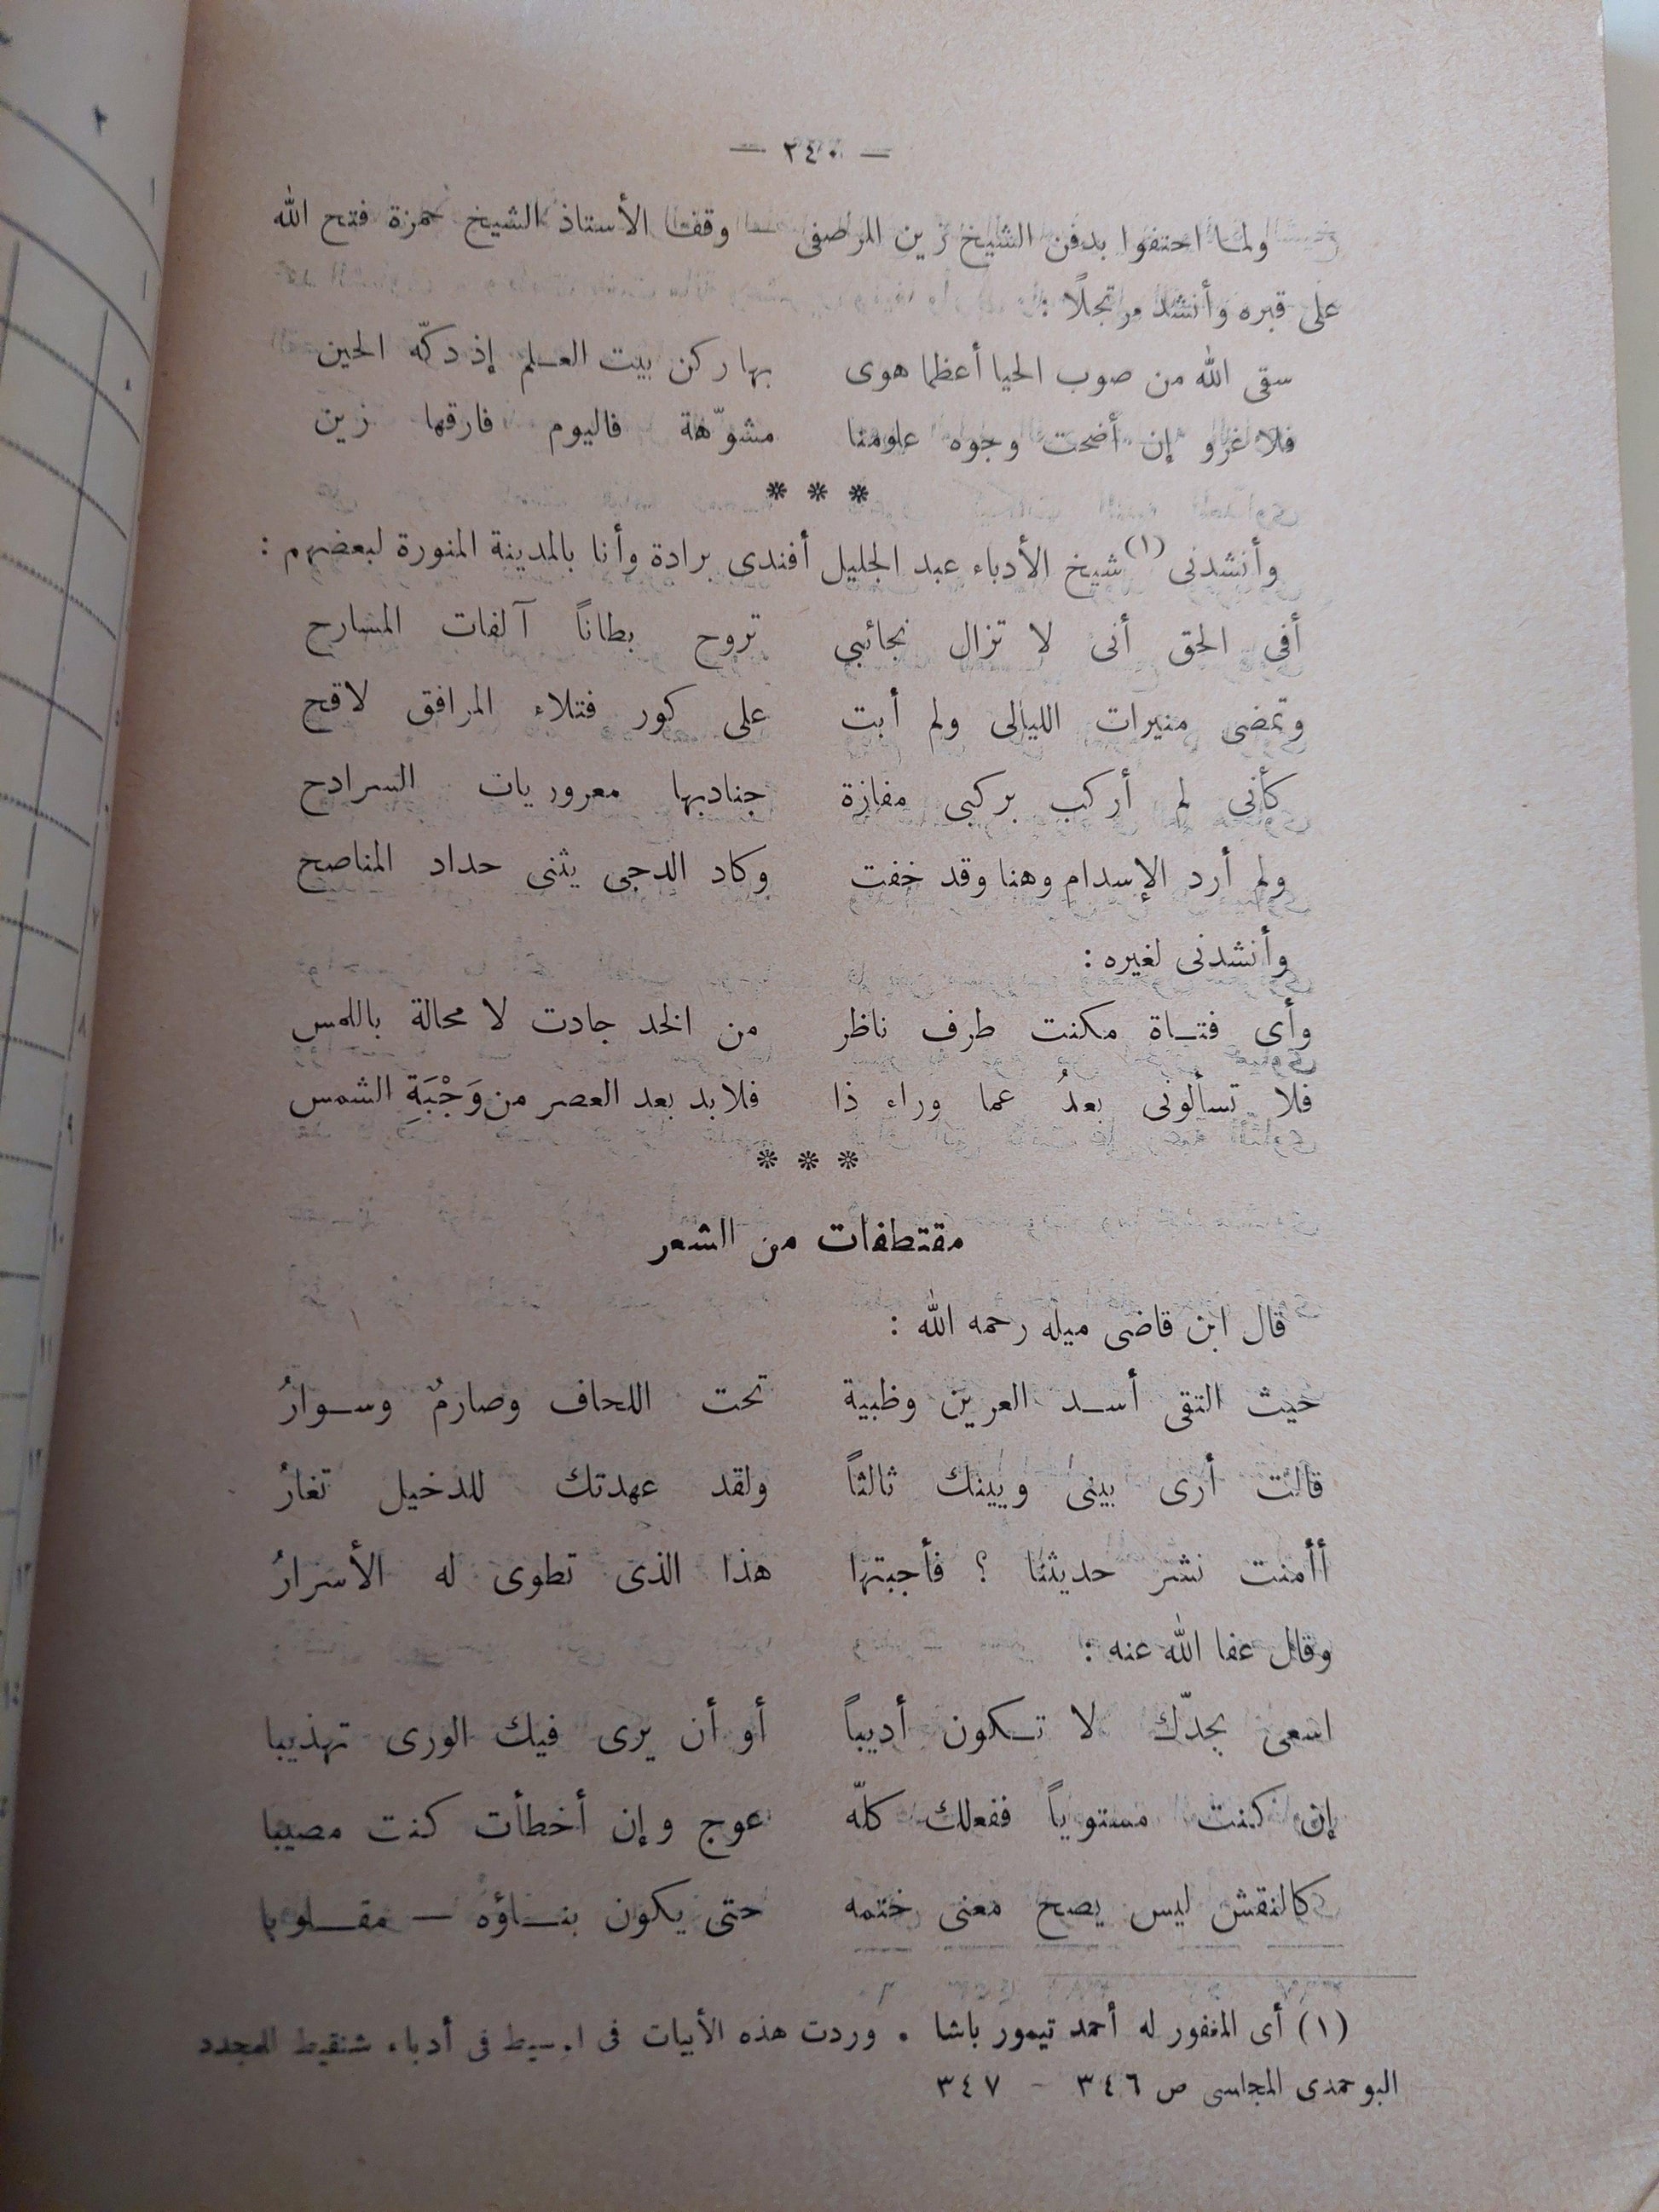 — ٢٤٠ —
ولما احتفوا بدفن الشيخ زين المرصفى وقف الأستاذ الشيخ حمزة فتح الله
على قبره وأنشد مرتجلًا :
سقى الله من صوب الحيا أعظما هوى بها ركن بيت العـلم إذ دكّه الحين
فلا غرو إن أضحت وجوه علومنا مشوّهة فاليوم فارقها زين
* * *
وأنشدنى (١) شيخ الأدباء عبد الجليل أفندى برادة وأنا بالمدينة المنورة لبعضهم :
أفى الحق أنى لا تزال نجائبي تروح بطاناً آلفات المسارح
وتمضى منيرات الليالى ولم أبت على كور فتلاء المرافق لاقح
كأنى لم أركب بركبى مفازة جنادبها معروريات السرادح
ولم أرد الإسدام وهنا وقد خفت وكاد الدجى يثنى حداد المناصح
وأنشدنى لغيره :
وأى فتـاة مكنت طرف ناظر من الخد جادت لا محالة باللمس
فلا تسألونى بعدُ عما وراء ذا فلابد بعد العصر من وَجْبَةِ الشمس
* * *
مقتطفات من الشعر
قال ابن قاضى ميله رحمه الله :
حيث التقى أسـد العرين وظبية تحت اللحاف وصارمٌ وسـوارُ
قالت أرى بينى وبينك ثالثاً ولقد عهدتك للدخيل تغارُ
أأمنت نشر حديثنا ؟ فأجبتها هذا الذى تطوى له الأسرارُ
وقال عفا الله عنه :
اسعى بجدّك لا تـكون أديباً أو أن يرى فيك الورى تهذيبا
إن كنت مستوياً ففعلك كلّه عوج وإن أخطأت كنت مصيبا
كالنقش ليس يصح معنى ختمه حتى يكون بنـاؤه — مقـلوبا
(١) أى المغفور له أحمد تيمور باشا . وردت هذه الأبيات فى سيط فى أدباء شنقيط للمجدد
البوحمدى المجلسى ص ٣٤٦ - ٣٤٧